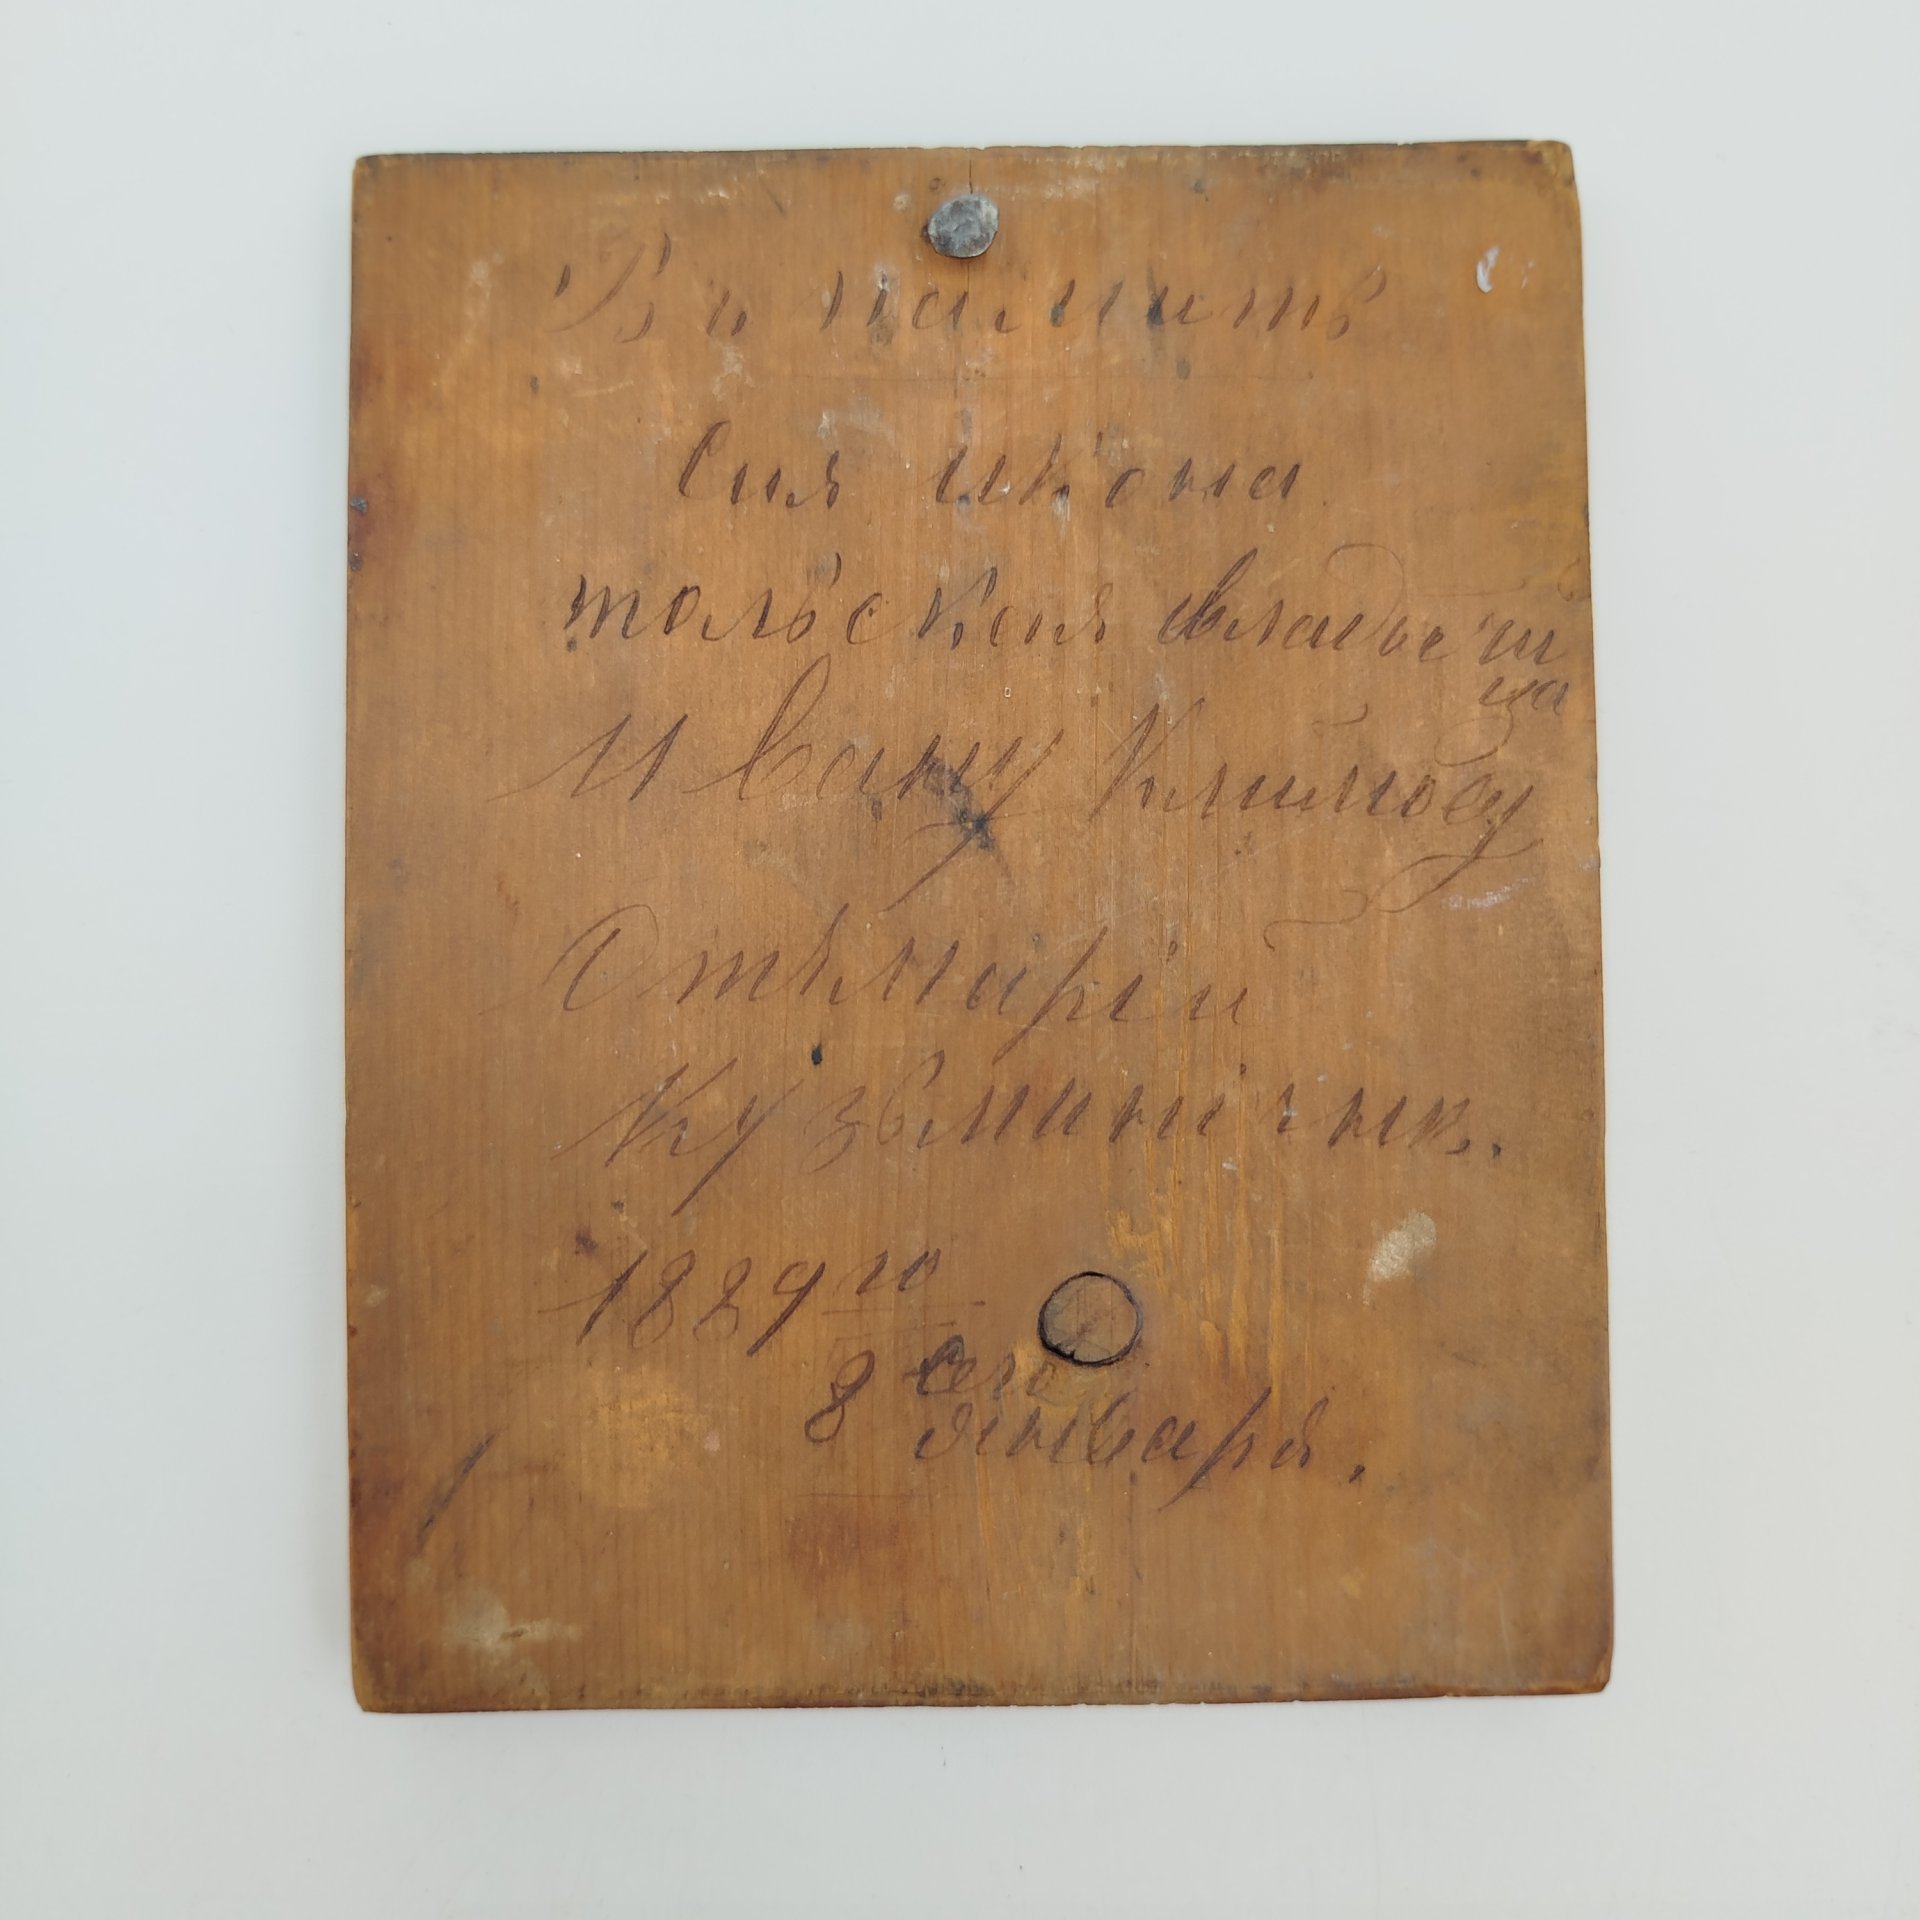 Въ память
Сия икона
тольская владыч
ица
Ивану Климову
Отъ марiи
Кузьминичны.
1889 го
8 сего
января.